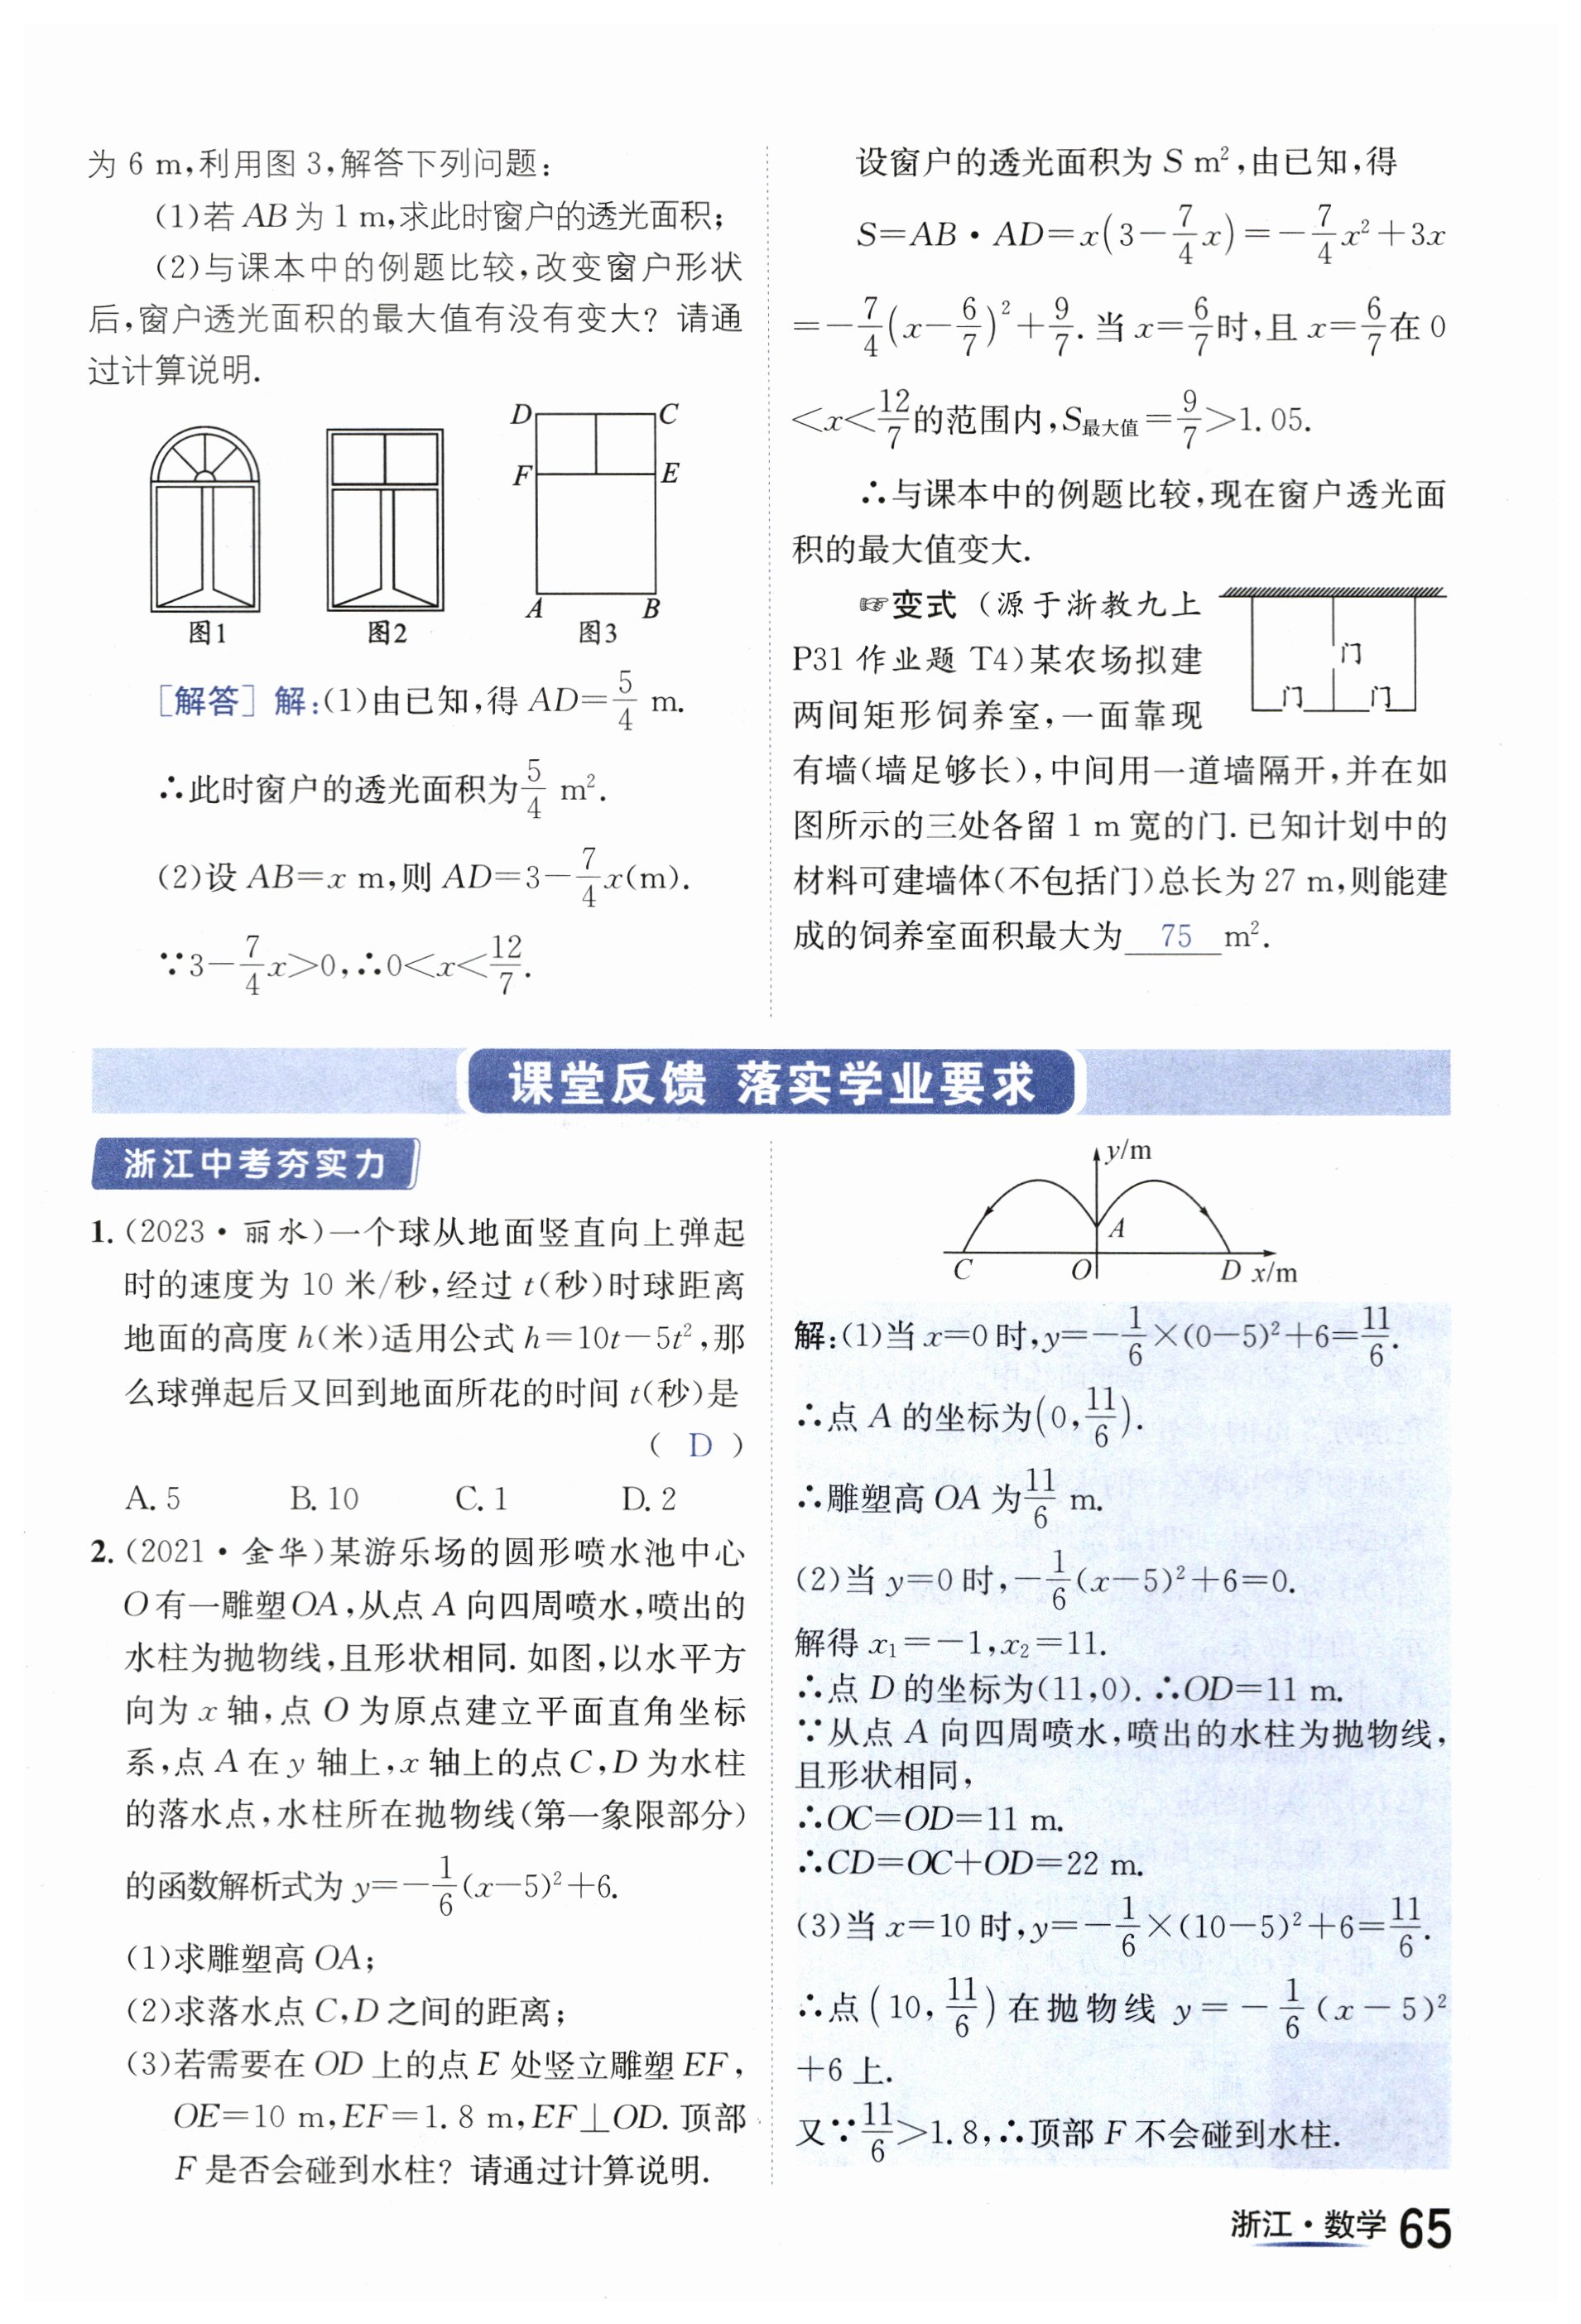 为 6 m,利用图 3,解答下列问题:
(1)若 AB 为 1 m,求此时窗户的透光面积;
(2)与课本中的例题比较,改变窗户形状
后,窗户透光面积的最大值有没有变大? 请通
过计算说明.
D C
F E
A B
图1 图2 图3
[解答] 解:(1)由已知,得 AD=5/4 m.
∴此时窗户的透光面积为5/4 m².
(2)设 AB=x m,则 AD=3-7/4x(m).
∵3-7/4x>0,∴0<x<12/7.
设窗户的透光面积为 S m²,由已知,得
S=AB·AD=x(3-7/4x)=-7/4x²+3x
=-7/4(x-6/7)²+9/7.当 x=6/7时,且 x=6/7在 0
<x<12/7的范围内,S最大值=9/7>1.05.
∴与课本中的例题比较,现在窗户透光面
积的最大值变大.
☞变式 (源于浙教九上
P31 作业题 T4)某农场拟建
两间矩形饲养室,一面靠现
有墙(墙足够长),中间用一道墙隔开,并在如
图所示的三处各留 1 m 宽的门.已知计划中的
材料可建墙体(不包括门)总长为 27 m,则能建
成的饲养室面积最大为 75 m².
门
门 门
课堂反馈 落实学业要求
浙江中考夯实力
1.(2023·丽水)一个球从地面竖直向上弹起
时的速度为 10 米/秒,经过 t(秒)时球距离
地面的高度 h(米)适用公式 h=10t-5t²,那
么球弹起后又回到地面所花的时间 t(秒)是
( D )
A. 5 B. 10 C. 1 D. 2
2.(2021·金华)某游乐场的圆形喷水池中心
O有一雕塑OA,从点 A 向四周喷水,喷出的
水柱为抛物线,且形状相同.如图,以水平方
向为 x 轴,点 O 为原点建立平面直角坐标
系,点 A 在 y 轴上,x 轴上的点 C,D 为水柱
的落水点,水柱所在抛物线(第一象限部分)
的函数解析式为 y=-1/6(x-5)²+6.
(1)求雕塑高 OA;
(2)求落水点 C,D 之间的距离;
(3)若需要在 OD 上的点 E 处竖立雕塑 EF,
OE=10 m,EF=1.8 m,EF⊥OD.顶部
F 是否会碰到水柱? 请通过计算说明.
y/m
A
C O D x/m
解:(1)当 x=0 时,y=-1/6×(0-5)²+6=11/6.
∴点 A 的坐标为(0,11/6).
∴雕塑高 OA 为11/6 m.
(2)当 y=0 时,-1/6(x-5)²+6=0.
解得 x₁=-1,x₂=11.
∴点 D 的坐标为(11,0).∴OD=11 m.
∵从点 A 向四周喷水,喷出的水柱为抛物线,
且形状相同,
∴OC=OD=11 m.
∴CD=OC+OD=22 m.
(3)当 x=10 时,y=-1/6×(10-5)²+6=11/6.
∴点(10,11/6)在抛物线 y=-1/6(x-5)²
+6 上.
又∵11/6>1.8,∴顶部 F 不会碰到水柱.
浙江·数学 65